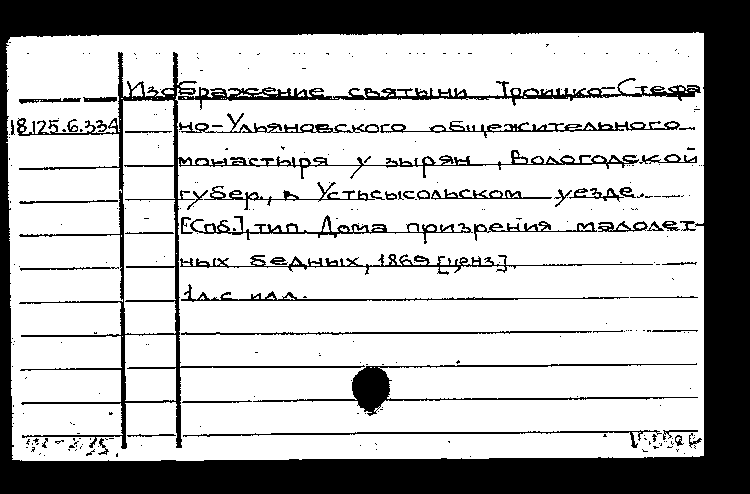 Изображение святыни Троицко-Стефа-
18.125.6.334 но-Ульяновского общежительного
монастыря у зырян, Вологодской
губер., в Устьсысольском уезде.
[Спб.], тип. Дома призрения малолет-
ных бедных, 1869 [ценз].
1 л. с илл.